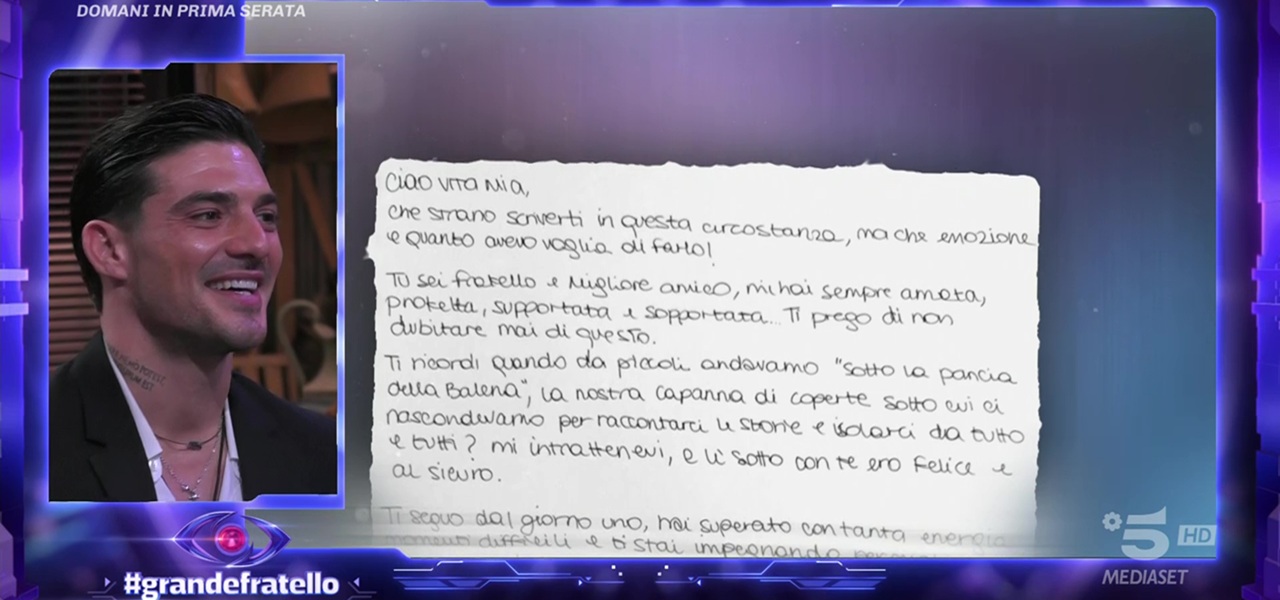 DOMANI IN PRIMA SERATA
CIAO VITA MIA,
che strano scriverti in questa circostanza, ma che emozione
e quanto avevo voglia di farlo!
Tu sei fratello e migliore amico, mi hai sempre amata,
protetta, supportata e sopportata... Ti prego di non
dubitare mai di questo.
Ti ricordi quando da piccoli andavamo "sotto la pancia
della Balena", la nostra capanna di coperte sotto cui ci
nascondevamo per raccontarci le storie e isolarci da tutto
e tutti? mi intrattenevi, e lì sotto con te ero felice e
al sicuro.
Ti seguo dal giorno uno, hai superato con tanta energia
momenti difficili e ti stai impegnando
#grandefratello
5 HD
MEDIASET